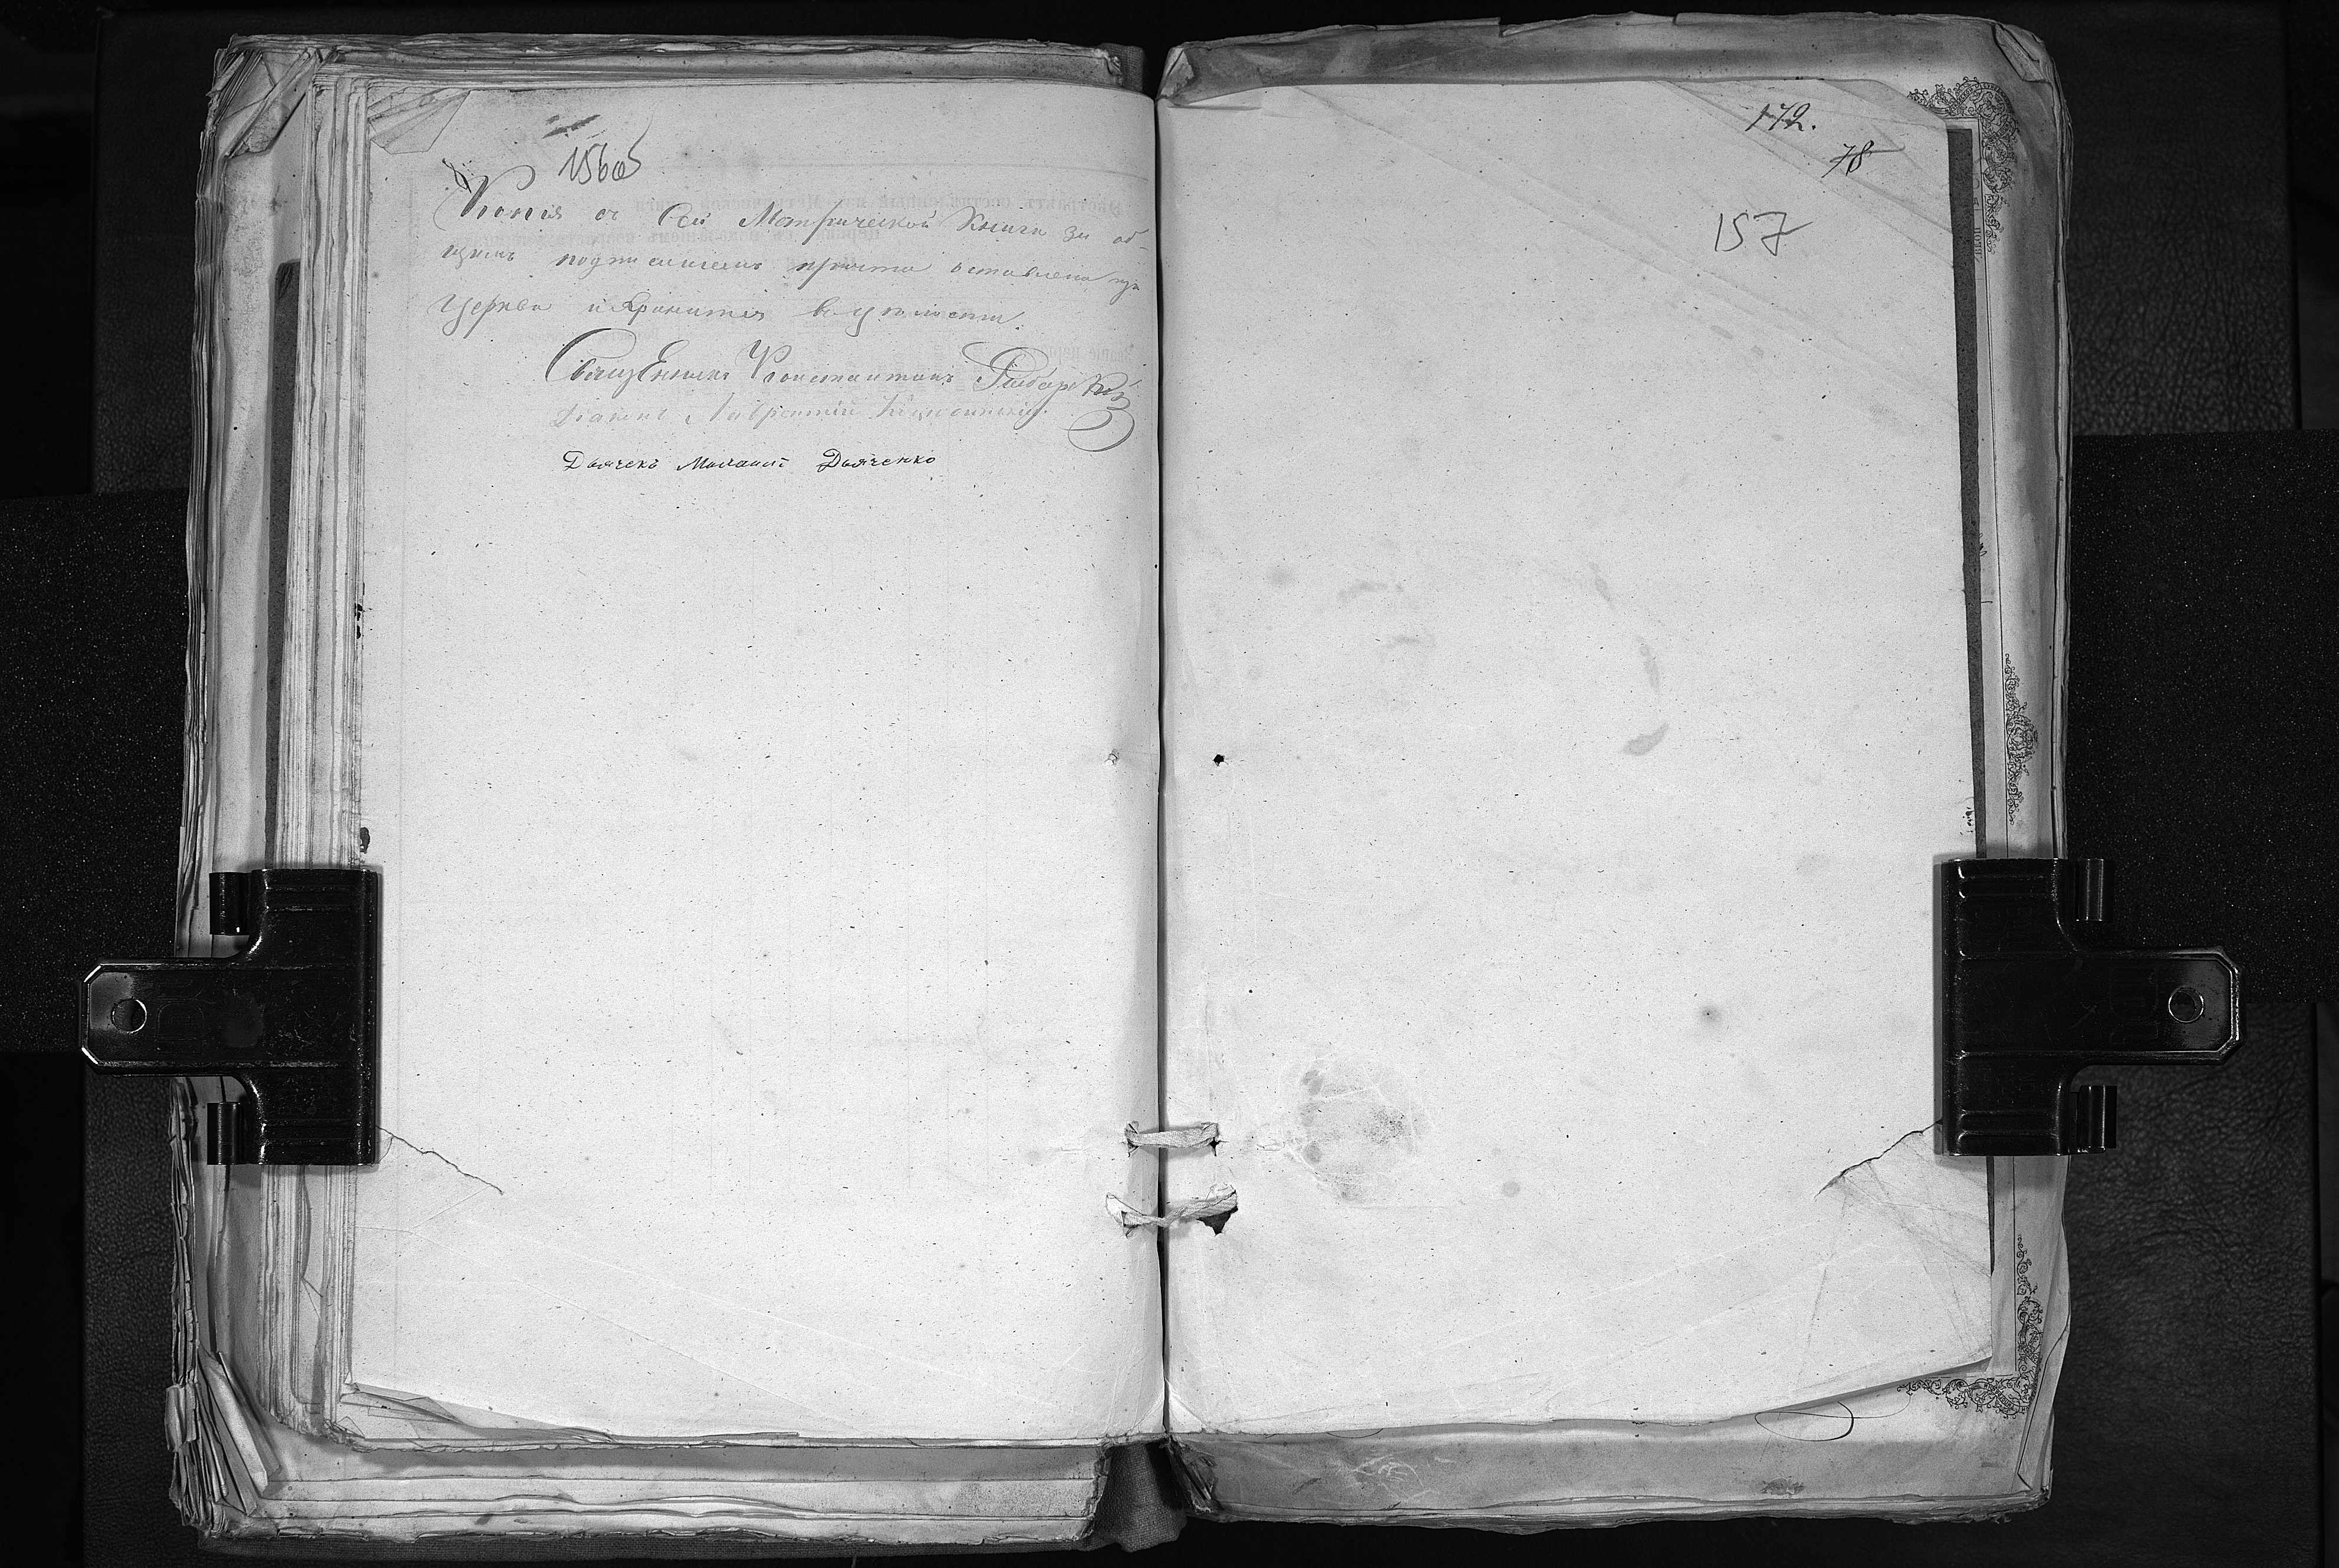 156об
Копія съ сей Метрической Книги за об-
щимъ подписаніемъ причта оставлена при
Церкви и хранится въ цѣлости.
Священникъ Константинъ
Діаконъ Лаврентій
Дьячекъ Дьяченко
172.
78
157